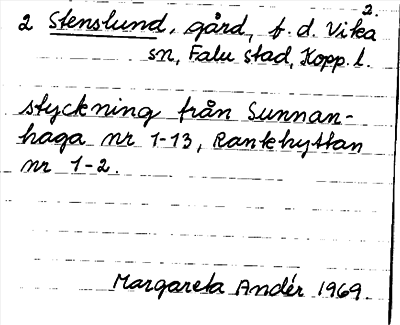 2.
2 Stenslund, gård, f. d. Vika
sn, Falu stad, Kopp. l.
styckning från Sunnan-
haga nr 1-13, Rankhyttan
nr 1-2.
Margareta Andér 1969